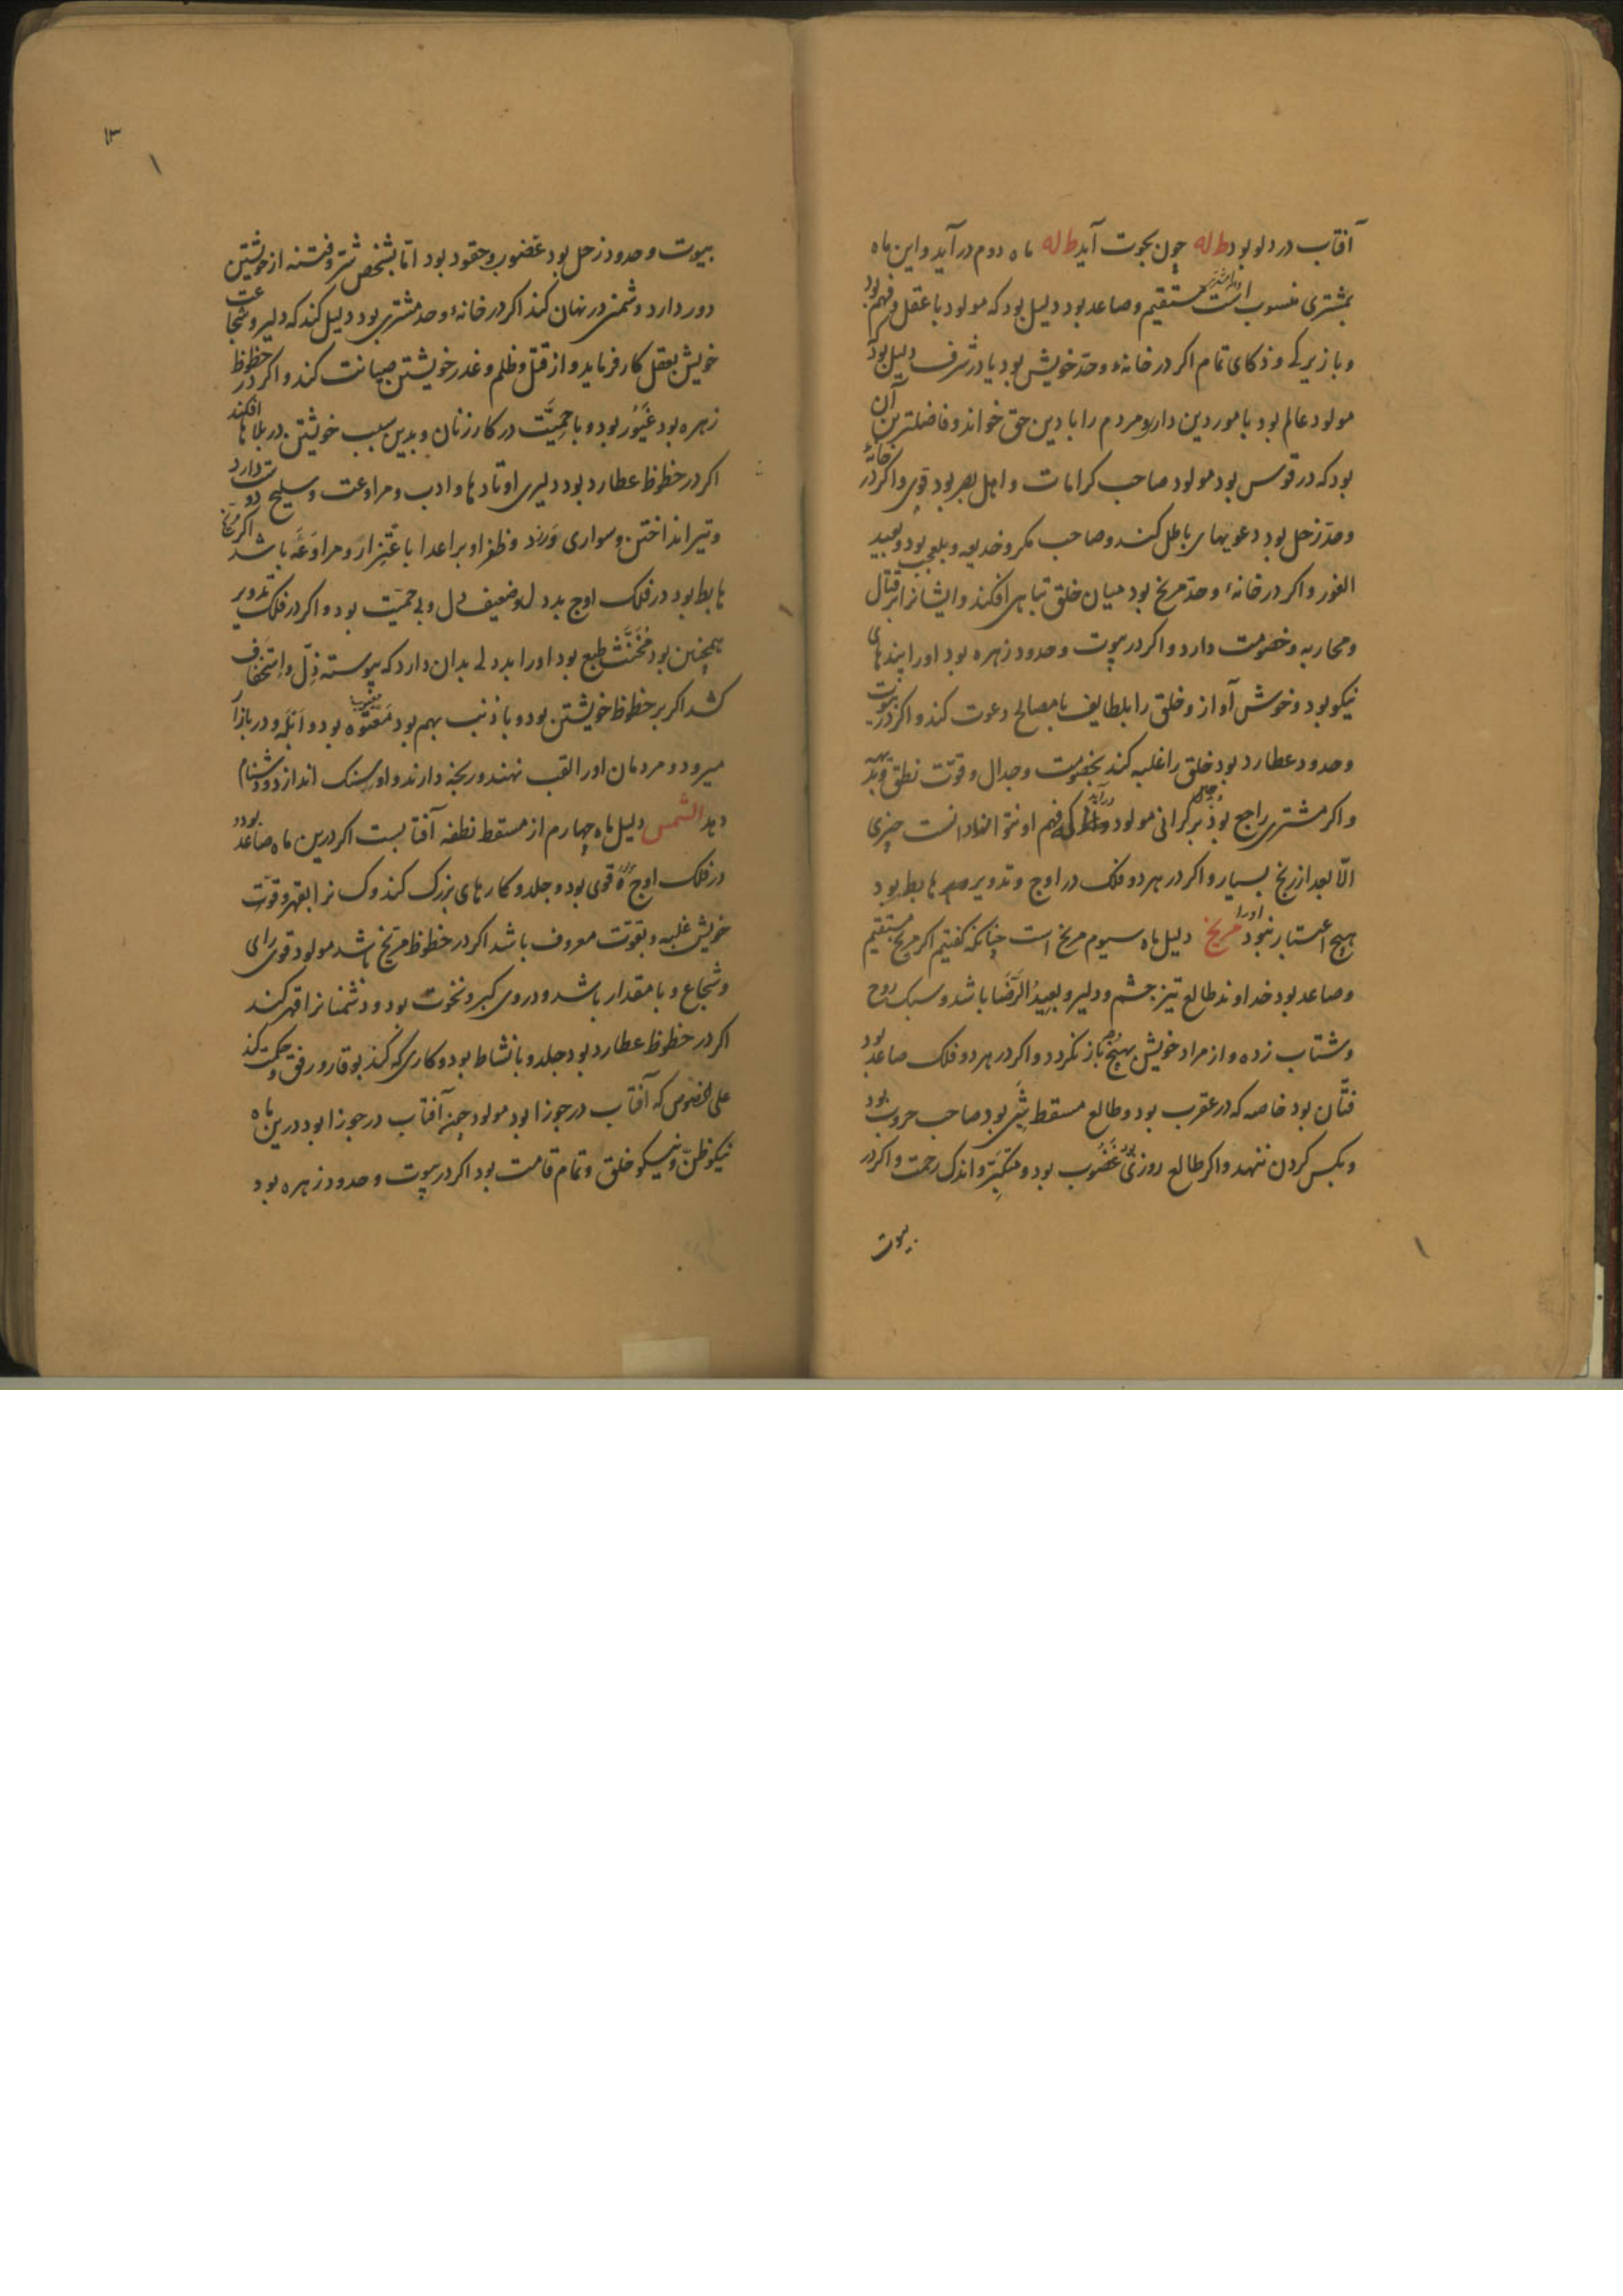 آفتاب در دلو بود ط له چون بحوت آید ط له ماه دوم در آید و این ماه
بمشتری منسوب است مستقیم و صاعد بود دلیل بود که مولود با عقل و فهم بود
و با زیرکی و ذکای تمام اکر در خانهٔ و حدّ خویش بود یا در شرف دلیل بود
مولود عالم بود بامور دین دارد و مردم را با دین حق خواند و فاضلترین آن
بود که در قوس بود مولود صاحب کرامات و اهل بصر بود قوی و اکر در خانهٔ
و حدّ زحل بود دعویهای باطل کند و صاحب مکر و خدیعه و بلعجب بود و بعید
الغور و اکر در خانهٔ و حدّ مریخ بود میان خلق تباهی افکند و ایشانرا بر قتال
و محاربه و خصومت دارد و اکر در بیوت و حدود زهره بود او را پندهای
نیکو بود و خوش آواز و خلق را بلطایف با مصالح دعوت کند و اکر در بیوت
و حدود عطارد بود خلق را غلبه کند بخصومت و جدال و قوّت نطق
و اکر مشتری راجع بود بر کرانی مولود که فهم او نتواند دانست چیزی
الّا بعد از رنج بسیار و اکر در هر دو فلک در اوج و تدویر هابط بود
هیچ اعتبار نبود او را مریخ دلیل ماه سیوم مریخ است چنانکه کفتیم اکر مریخ مستقیم
و صاعد بود خداوند طالع تیز چشم و دلیر و بعید الرّضا باشد و سبک روح
و شتاب زده و از مراد خویش بهیچ باز نکردد و اکر در هر دو فلک صاعد بود
فتّان بود خاصه که در عقرب بود و طالع مسقط شبی بود صاحب حروب بود
و بکس کردن ننهد و اکر طالع روزی بود غضوب بود و متکبّر و اندک رحمت و اکر در
بیوت
١٣
بیوت و حدود زحل بود غضوب و حقود بود امّا بشخص شرّ و فتنه از خویشتن
دور دارد و شمنی در نهان کند اکر در خانهٔ و حد مشتری بود دلیل کند که دلیر و شجاعت
خویش بعقل کار فرماید و از قتل و ظلم و غدر خویشتن صیانت کند و اکر در حظوظ
زهره بود غیور بود و با حمیّت در کار زنان و بدین سبب خویشتن در بلاها افکند
اکر در حظوظ عطارد بود دلیری اوتادها و ادب و مراوعت و سلیح دوست دارد
و تیر انداختن و سواری ورزد و ظفر او بر اعدا باغترار و مراوغه باشد اکر مریخ
هابط بود در فلک اوج بد دل و ضعیف دل و بی حمیّت بود و اکر در فلک تدویر
همچنین بود مخنّث طبع بود او را بد دلی بدان دارد که پیوسته ذلّ و استخفاف
کشد اکر بر حظوظ خویشتن بود و با ذنب بهم بود معتوه بود و ابله و در بازار
میرود و مردمان او را لقب نهند و رنجه دارند و او سنک اندازد و دشنام
دهد الشمس دلیل ماه چهارم از مسقط نطفه آفتابست اکر درین ماه صاعد بود
در فلک اوج قوی بود و جلد و کارهای بزرک کند و کسانرا بقهر و قوّت
خویش غلبه و بقوّت معروف باشد اکر در حظوظ مریخ باشد مولود قوی رای
و شجاع و با مقدار باشد و در وی کبر و نخوت بود و دشمنانرا قهر کند
اکر در حظوظ عطارد بود جلد و با نشاط بود و کاری که کند بوقار و رفق و حکمت کند
علی الخصوص که آفتاب در جوزا بود مولود چون آفتاب در جوزا بود درین ماه
نیکو ظنّ و نیکو خلق و تمام قامت بود اکر در بیوت و حدود زهره بود